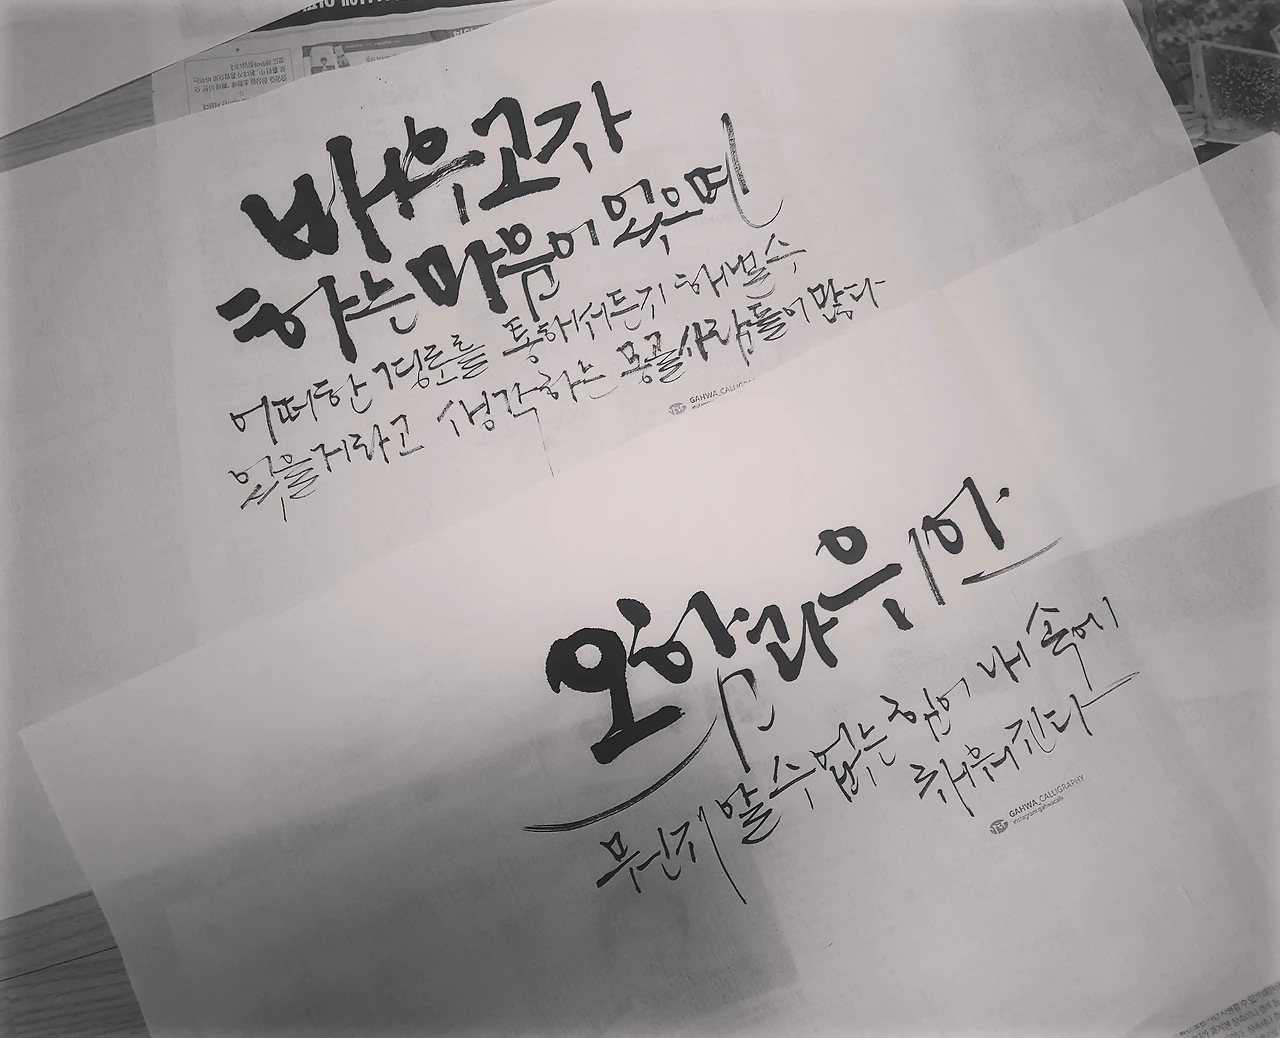 배우고자
하는 마음이 있으면
어떠한 경로를 통해서든지 해낼 수
있을거라고 생각하는 몽골사람들이 많다
GAHWA_CALLIGRA
오함과 위안
무언지 알 수 없는 힘이 내 속에
채워진다
GAHWA_CALLIGRAPHY
instagram:gahwacalli